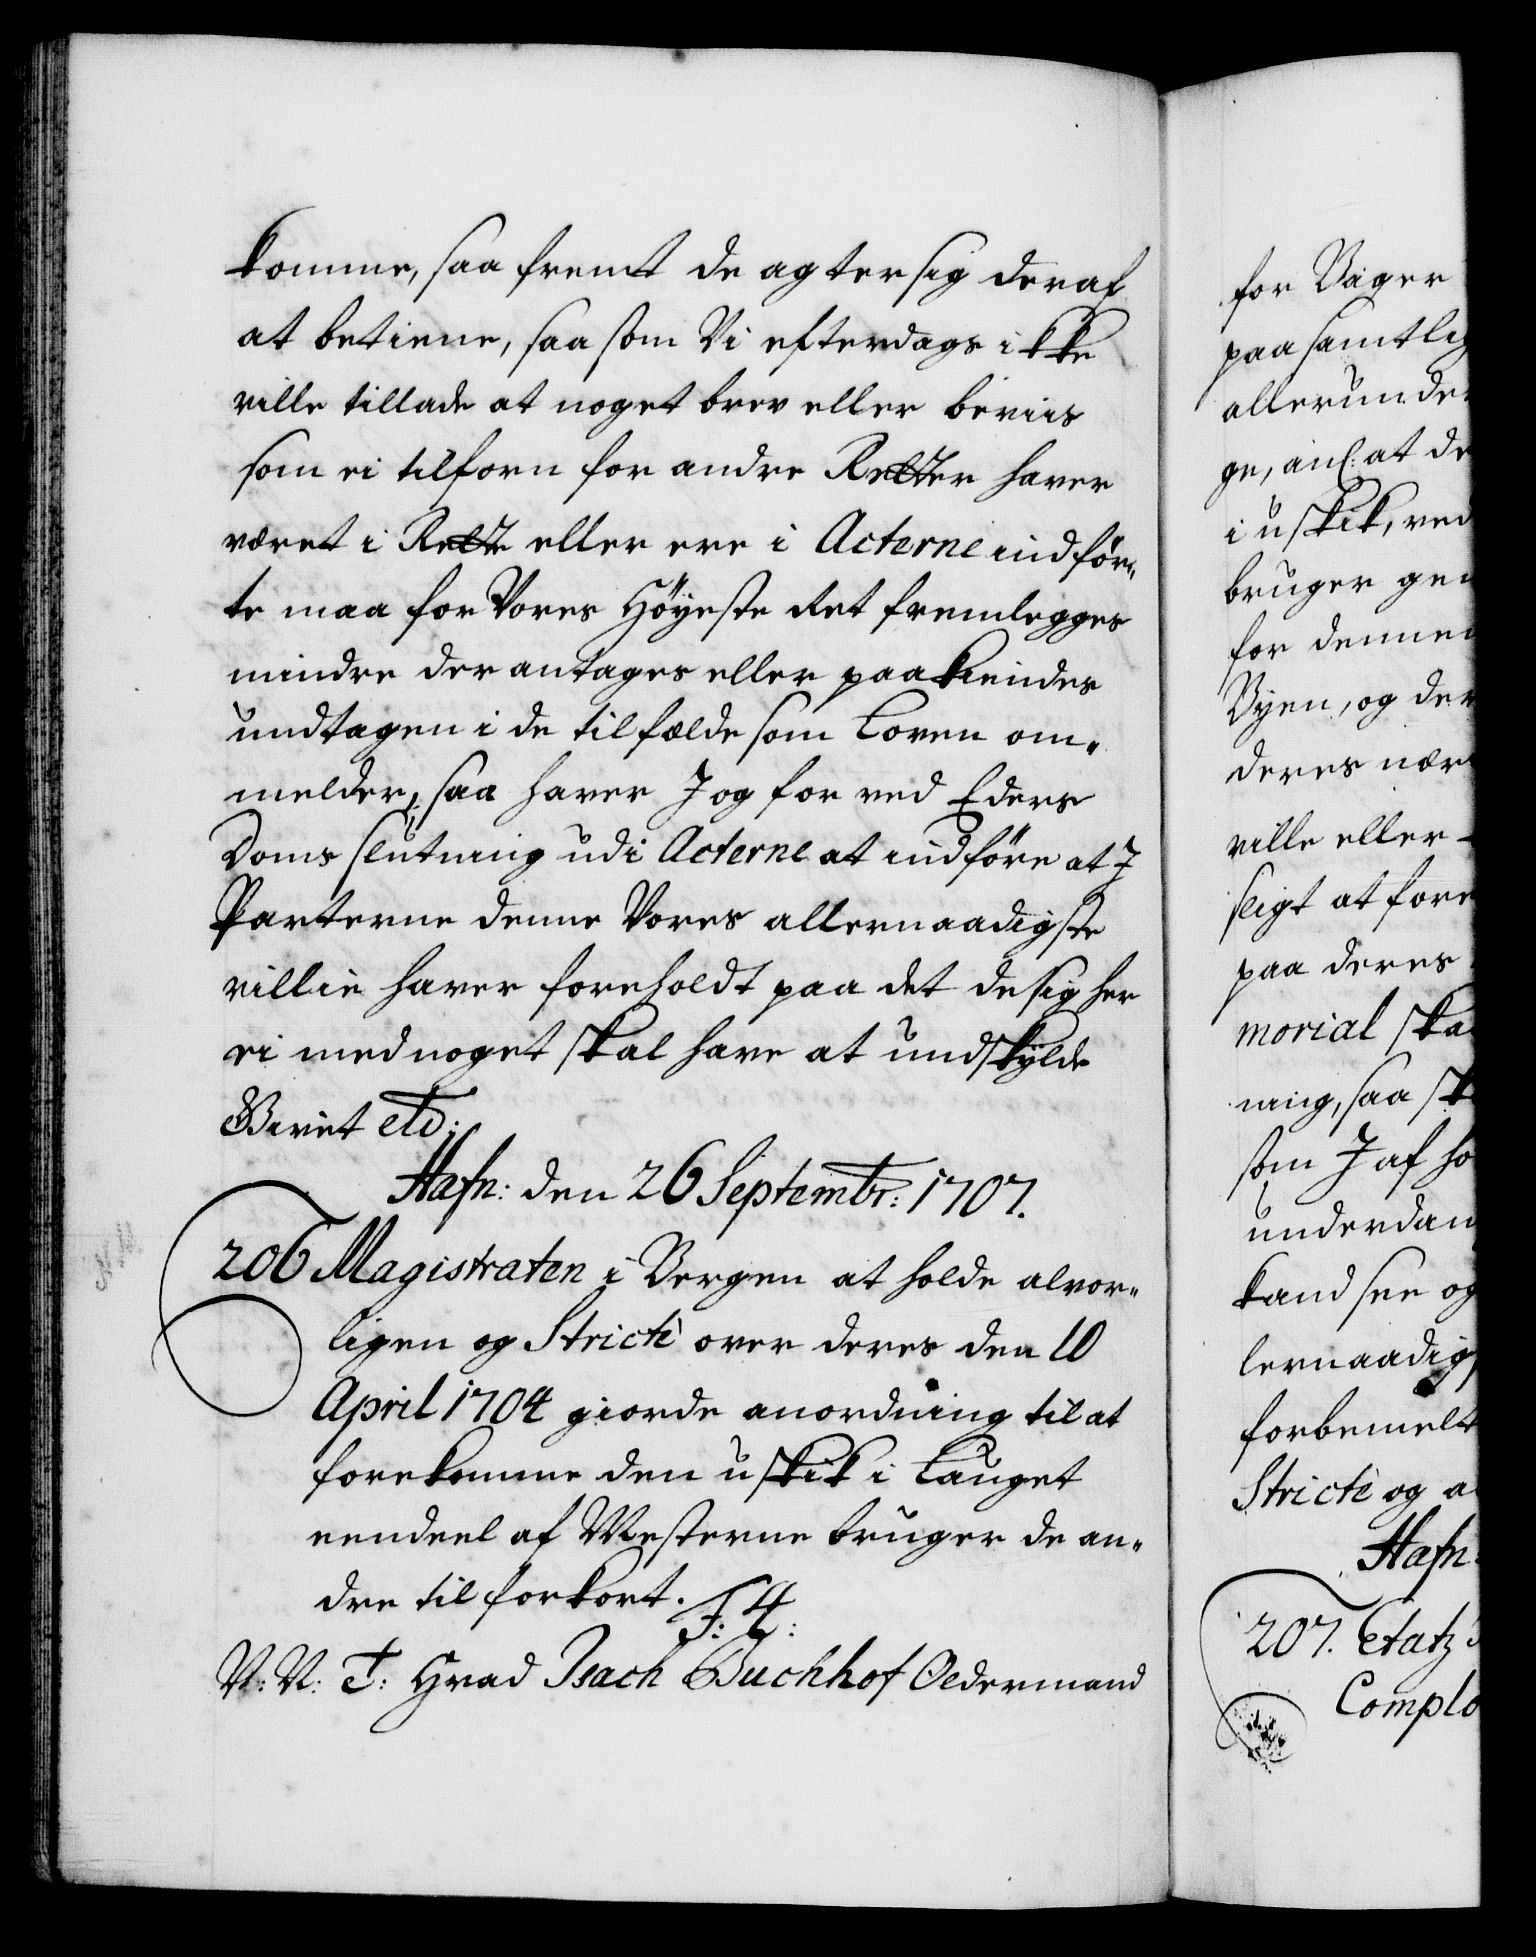 komme, saa fremt de agter sig deraf
at betiene, saa som Vi efterdags ikke
ville tillade at noget brev eller beviis
som ei tilforn for andre Retter haver
været i Rette eller ere i Acterne indför„
te maa for Vores Höyeste Ret fremlegges
mindre der antages eller paakiendes
undtagen i de tilfælde som Loven om„
melder, saa haver I og for ved Eders
Doms slutning udi Acterne at indföre at I
Parterne denne Vores allernaadigste
villie haver foreholdt paa det de sig her
ei med noget skal have at undskylde
Givet etc:
Hafn: den 26 Septembr: 1707.
206 Magistraten i Bergen at holde alvor„
ligen og Strictè over deres den 10
April 1704 giorde anordning til at
forekomme den uskik i Lauget
eendeel af Mesterne bruger de an„
dre til forkort.
F: 4:
V: V: T: Hvad Isach Buchhof Oldermand
for Bager
paa samtlig
allerunde
ge, anl: at de
i uskik, ved
bruger gen
for denne
Byen, og der
deres nær
ville eller
sligt at fore
paa deres
morial ska
ning, saa sk
som I af ho
underdan
kand see og
lernaadigs
forbemelt
Strictè og a
Hafn:
207. Etatz
Complo